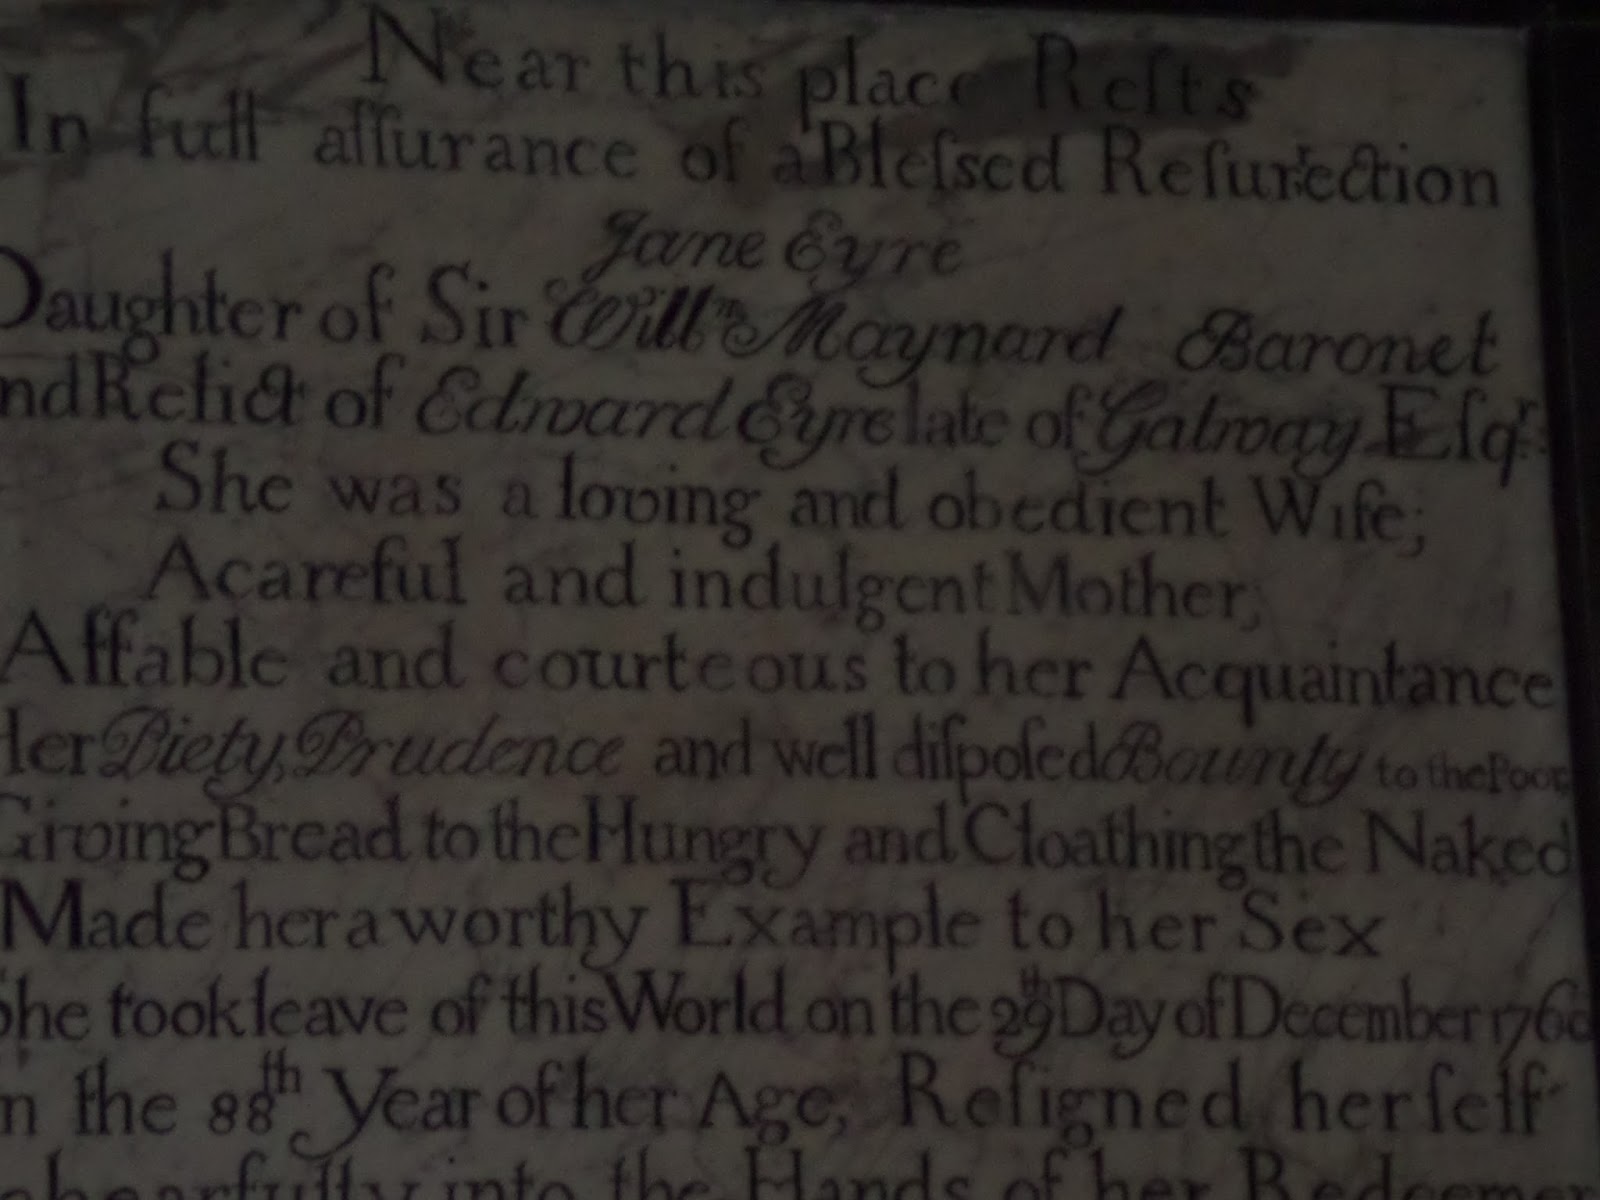 Near this place Reſts
In full aſſurance of a Bleſsed Reſurrection
Jane Eyre
Daughter of Sir Willm Maynard Baronet
nd Relict of Edward Eyre late of Galway Eſqr
She was a loving and obedient Wife;
A careful and indulgent Mother;
Affable and courteous to her Acquaintance
Her Piety, Prudence and well diſpoſed Bounty to the Poor
Giving Bread to the Hungry and Cloathing the Naked
Made her a worthy Example to her Sex
She took leave of this World on the 29th Day of December 1760
n the 88th Year of her Age, Reſigned herſelf
hearfully into the Hands of her Redeemer